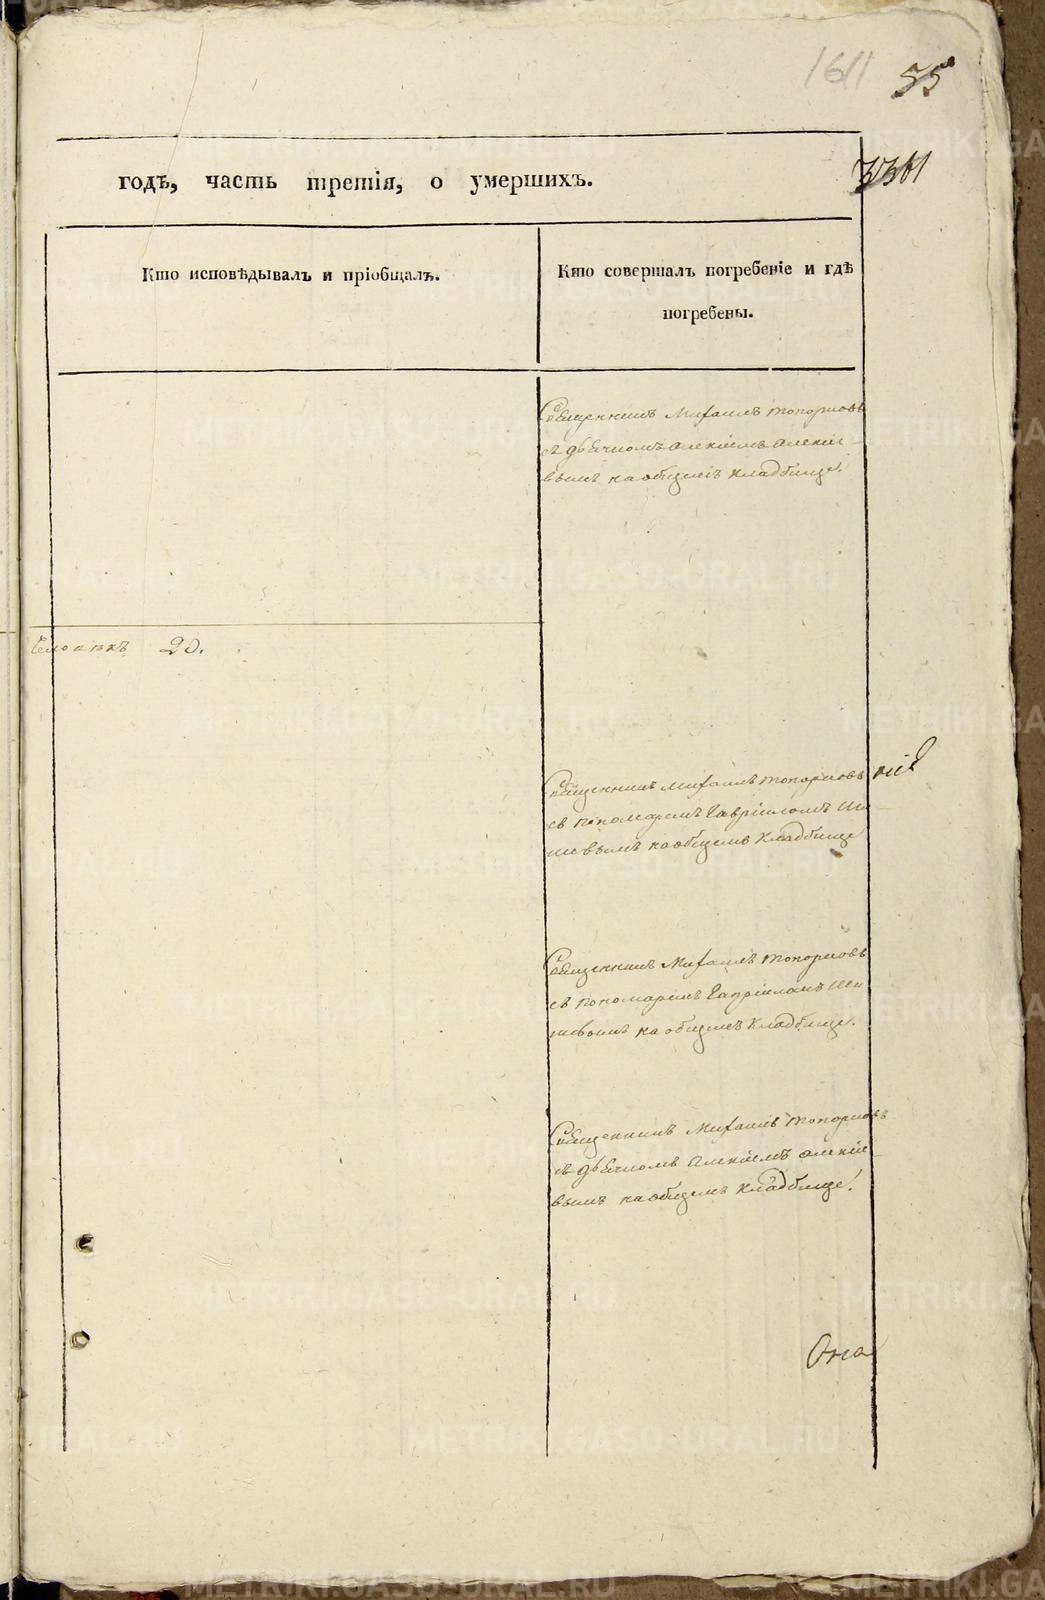 1611 55
3361
годѣ, часть третія, о умершихъ.
Кто исповѣдывалъ и пріобщалъ.
Кто совершалъ погребеніе и гдѣ
погребены.
Священникъ Михаилъ Топорковъ
съ дьячкомъ Алексіемъ Алексіе
вымъ на общемъ кладбище.
Человѣкъ 20.
Священникъ Михаилъ Топорковъ
съ пономаремъ Гавріиломъ
на общемъ кладбище
Священникъ Михаилъ Топорковъ
съ пономаремъ Гавріиломъ
на общемъ кладбище.
Священникъ Михаилъ Топорковъ
съ дьячкомъ Алексіемъ Алексіе
вымъ на общемъ кладбище.
METRIKI.GASO-URAL.RU